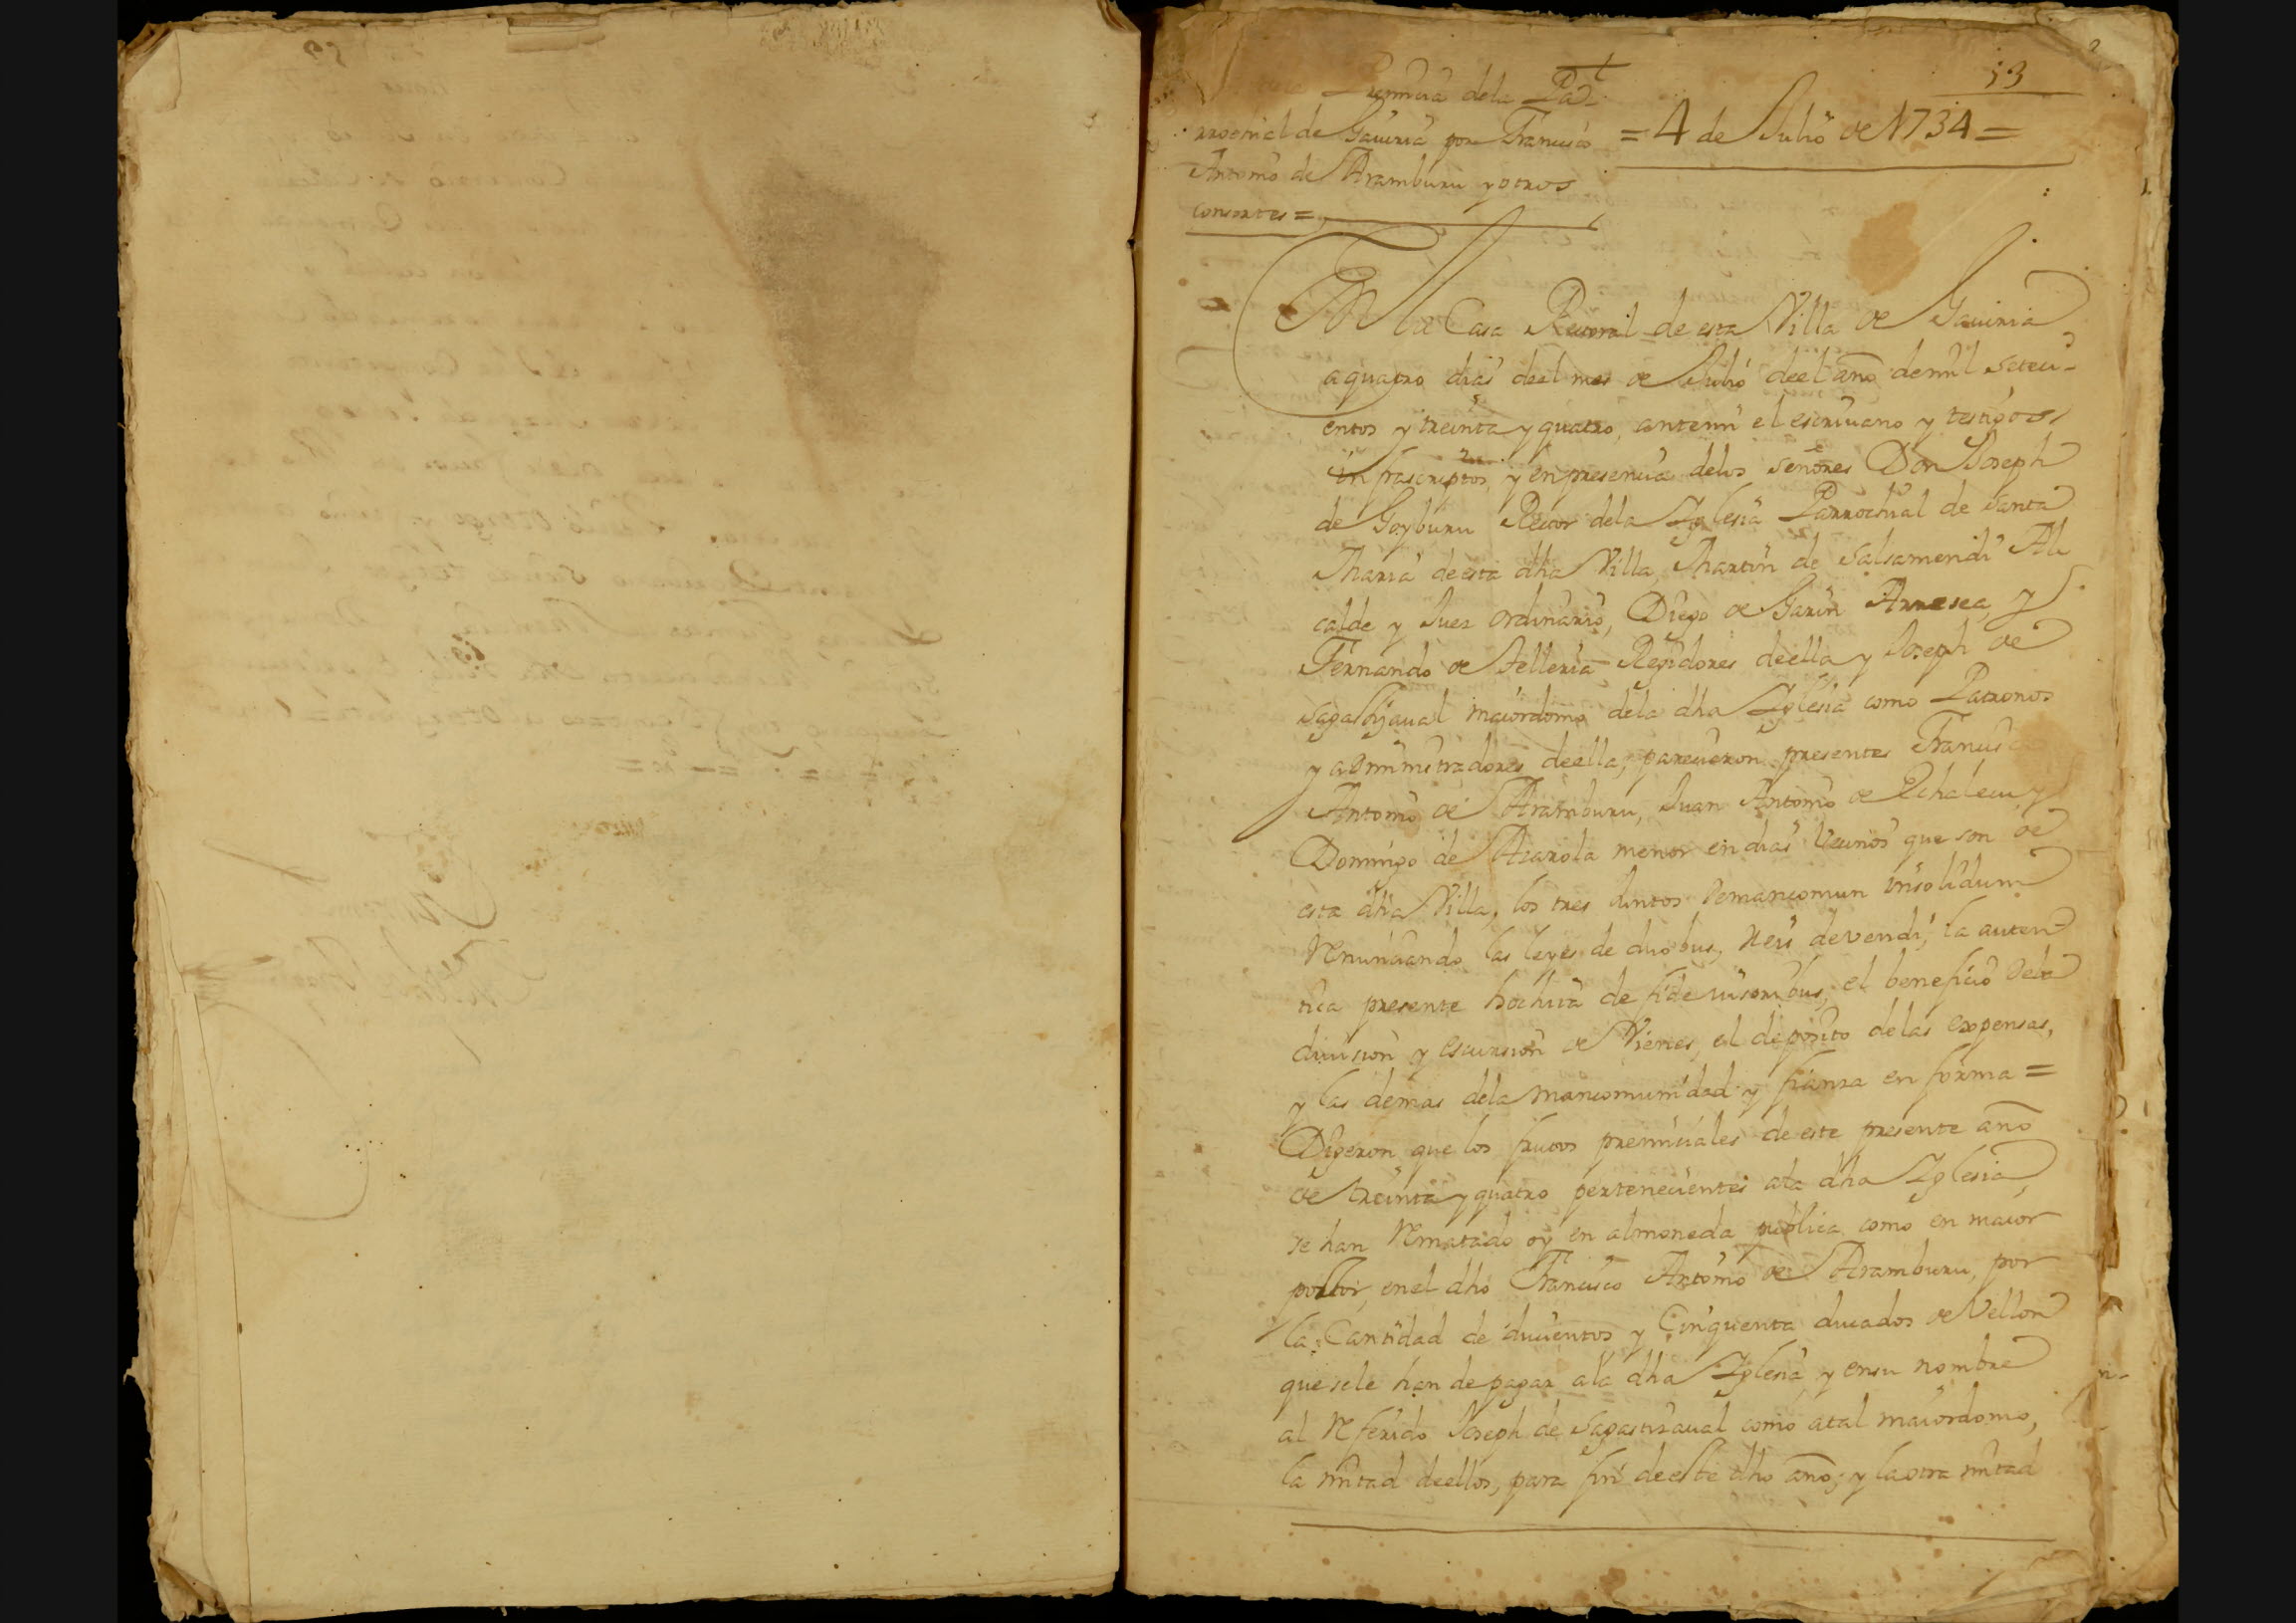 13
Premicia dela Pa
rrochial de Gauiria por Francisco
Antonio de Aramburu y otros
consortes =
= 4 de Julio de 1734 =
En la Casa Rectoral de esta Villa de Gauiria
a quatro dias deel mes de Julio deel año de mil seteci-
entos y treinta y quatro, ante mi el escriuano y testigos
infrascriptos, y en presencia delos señores Don Joseph
de Goyburu Rector dela Yglesia Parrochial de Santa
Maria de esta dha Villa, Martin de Salsamendi Al
calde y Juez ordinario, Diego de Garin Arresea, y
Fernando de Telleria Regidores deella y Joseph de
Sagastiçaual maiordomo dela dha Yglesia como Patronos
y administradores deella, parecieron presentes Francisco
Antonio de Aramburu, Juan Antonio de Echalecu y
Domingo de Azarola menor en dias Vecinos que son de
esta dha Villa, los tres Juntos demancomun insolidum
Renunciando las leyes de duobus, Reis devendi, la auten
tica presente hochita de fide iusoribus, el beneficio dela
diuision y escursion de Vienes, el deposito delas expensas,
y las demas dela mancomunidad y fianza en forma =
Digeron que los frutos premiciales de este presente año
de treinta y quatro pertenecientes ala dha Yglesia,
se han Rematado oy en almoneda publica como en maior
postor, enel dho Francisco Antonio de Aramburu, por
la Cantidad de ducientos y Cinquenta ducados de Vellon
que sele han de pagar ala dha Yglesia, y ensu nombre
al Referido Joseph de Sagastizaual como atal maiordomo,
la mitad deellos, para fin deeste dho año; y la otra mitad